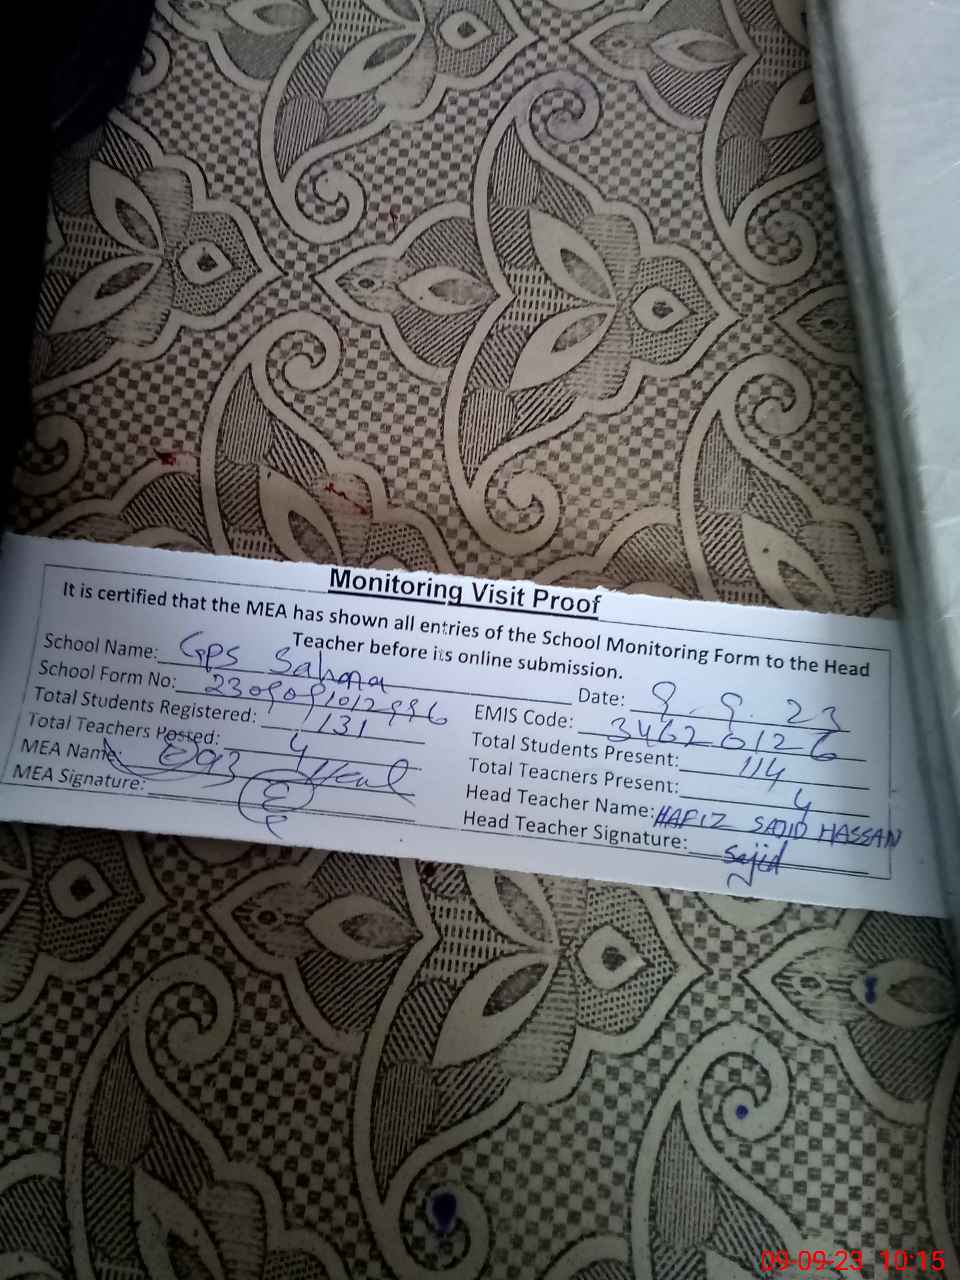 Monitoring Visit Proof
It is certified that the MEA has shown all entries of the School Monitoring Form to the Head
Teacher before its online submission.
School Name: GPS Sahana Date: 9.9.23
School Form No: EMIS Code: 34620126
Total Students Registered: 131 Total Students Present: 114
Total Teachers Posted: 4 Total Teachers Present: 4
MEA Name: Head Teacher Name: HAFIZ SAJID HASSAN
MEA Signature: Head Teacher Signature: Sajid
09-09-23 10:15